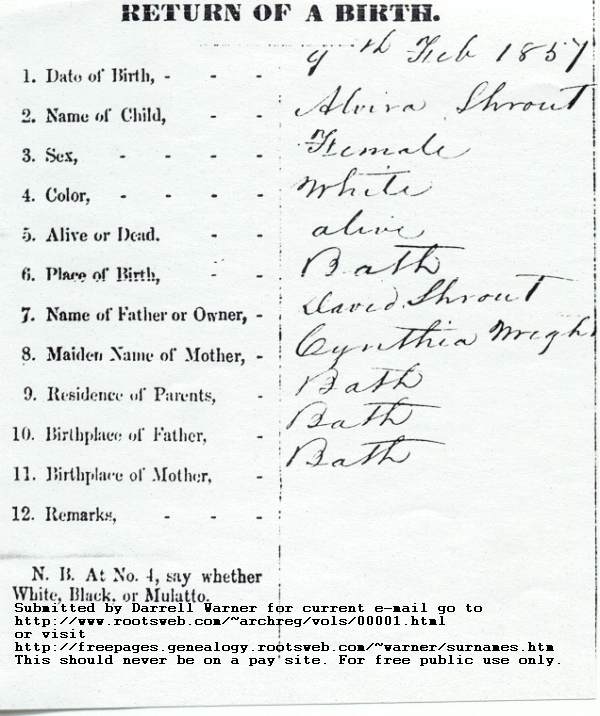 RETURN OF A BIRTH.
1. Date of Birth, - - - 9th Feb 1857
2. Name of Child, - - Alvira Shrout
3. Sex, - - - - Female
4. Color, - - - - White
5. Alive or Dead. - - alive
6. Place of Birth, - - Bath
7. Name of Father or Owner, - David Shrout
8. Maiden Name of Mother, - Cynthia Wright
9. Residence of Parents, - Bath
10. Birthplace of Father, - Bath
11. Birthplace of Mother, - Bath
12. Remarks, - - -
N. B. At No. 4, say whether
White, Black, or Mulatto.
Submitted by Darrell Warner for current e-mail go to
http://www.rootsweb.com/~archreg/vols/00001.html
or visit
http://freepages.genealogy.rootsweb.com/~warner/surnames.htm
This should never be on a pay site. For free public use only.